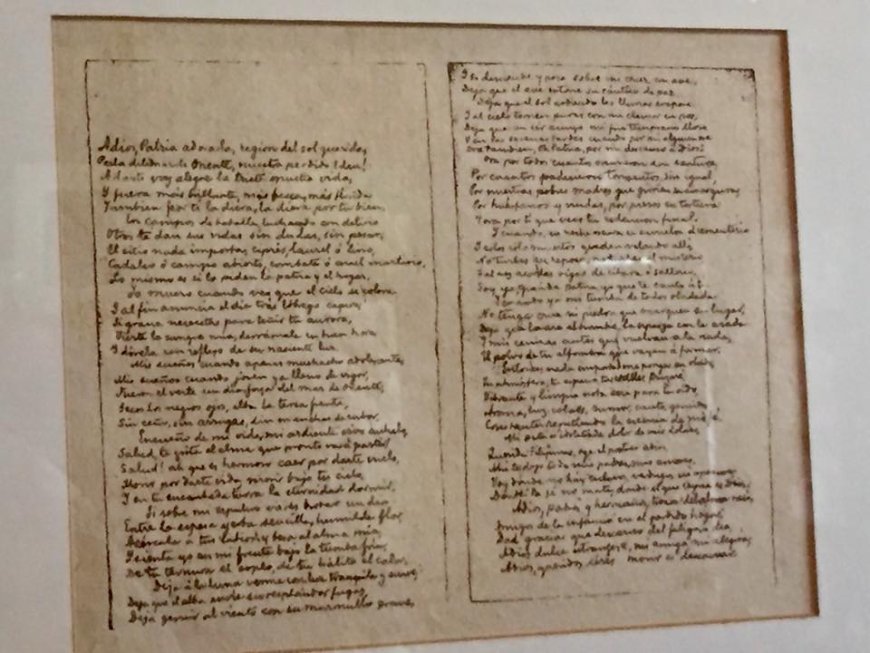 Adios, Patria adorada, region del sol querida,
Perla del mar de Oriente, nuestro perdido Eden!
A darte voy alegre la triste mustia vida,
Y fuera más brillante, más fresca, más florida
Tambien por ti la diera, la diera por tu bien.
En campos de batalla, luchando con delirio
Otros te dan sus vidas sin dudas, sin pesar;
El sitio nada importa, ciprés, laurel ó lirio,
Cadalso ó campo abierto, combate ó cruel martirio,
Lo mismo es si lo piden la patria y el hogar.
Yo muero cuando veo que el cielo se colora
Y al fin anuncia el dia tras lóbrego capuz;
Si grana necesitas para teñir tu aurora,
Vierte la sangre mia, derrámala en buen hora
Y dórela un reflejo de su naciente luz
Mis sueños cuando apenas muchacho adolescente,
Mis sueños cuando joven ya lleno de vigor,
Fueron el verte un dia, joya del mar de Oriente,
Secos los negros ojos, alta la tersa frente,
Sin ceño, sin arrugas, sin manchas de rubor.
Ensueño de mi vida, mi ardiente vivo anhelo,
Salud te grita el alma que pronto va á partir!
Salud! ah que es hermoso caer por darte vuelo,
Morir por darte vida, morir bajo tu cielo,
Y en tu encantada tierra la eternidad dormir.
Si sobre mi sepulcro vieres brotar un dia
Entre la espesa yerba sencilla, humilde flor,
Acércala a tus labios y besa al alma mia,
Y sienta yo en mi frente bajo la tumba fria
De tu ternura el soplo, de tu hálito el calor.
Deja á la luna verme con luz tranquila y suave;
Deja que el alba envie su resplandor fugaz,
Deja gemir al viento con su murmullo grave,
Y si desciende y posa sobre mi cruz un ave,
Deja que el ave entone su cántico de paz.
Deja que el sol ardiendo las lluvias evapore
Y al cielo tornen puras con mi clamor en pos,
Deja que un ser amigo mi fin temprano llore
Y en las serenas tardes cuando por mi alguien ore
Ora tambien, Oh Patria, por mi descanso á Dios!
Ora por todos cuantos murieron sin ventura,
Por cuantos padecieron tormentos sin igual,
Por nuestras pobres madres que gimen su amargura;
Por huérfanos y viudas, por presos en tortura
Y ora por ti que veas tu redencion final.
Y cuando en noche oscura se envuelva el cementerio
Y solos sólo muertos queden velando allí,
No turbes su reposo, no turbes el misterio
Tal vez acordes oigas de citara ó salterio,
Soy yo, querida Patria, yo que te canto á ti.
Y cuando ya mi tumba de todos olvidada
No tenga cruz ni piedra que marquen su lugar,
Deja que la are el hombre, la esparza con la azada
Y mis cenizas antes que vuelvan á la nada,
El polvo de tu alfombra que vayan á formar.
Entonces nada importa me pongas en olvido,
Tu atmósfera, tu espacio, tus valles cruzaré
Vibrante y limpia nota seré para tu oido,
Aroma, luz, colores, rumor, canto, gemido
Constante repitiendo la esencia de mi fé.
Mi patria idolatrada, dolor de mis dolores,
Querida Filipinas, oye el postrer adios.
Ahi te dejo todo, mis padres, mis amores.
Voy donde no hay esclavos, verdugos ni opresores,
Donde la fé no mata, donde el que reina es Dios.
Adios, padres y hermanos, trozos del alma mia,
Amigos de la infancia en el perdido hogar,
Dad gracias que descanso del fatigoso dia;
Adios, dulce extrangera, mi amiga, mi alegria,
Adios, queridos séres morir es descansar